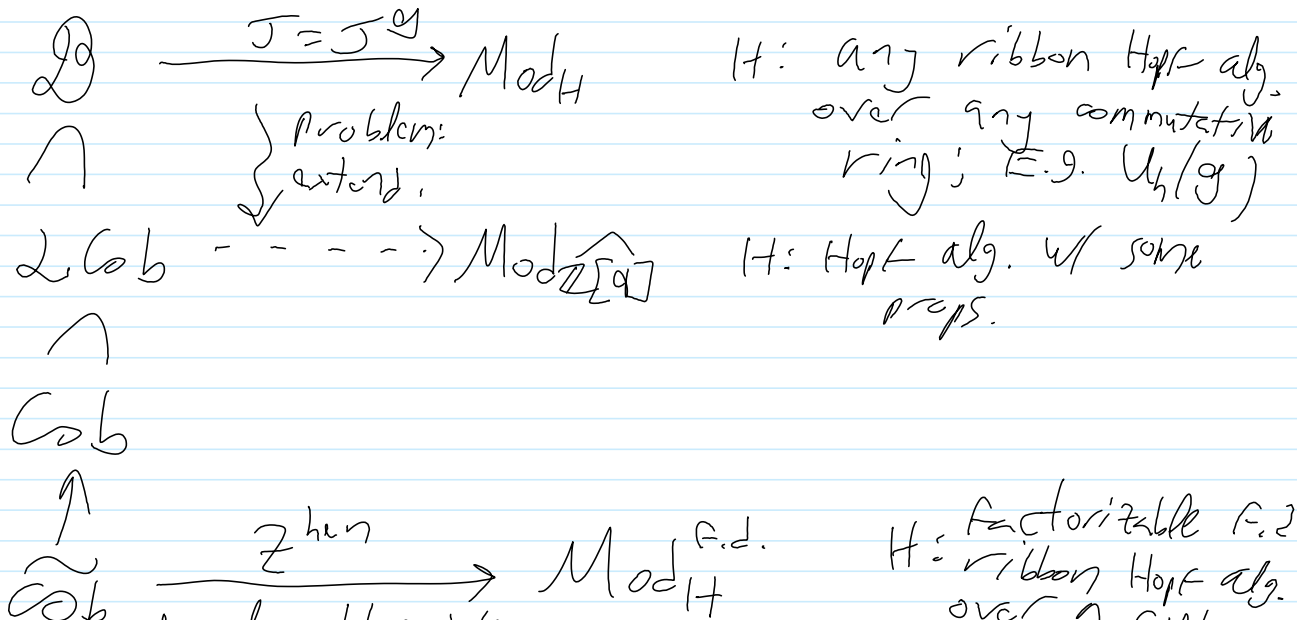 B J = J^g Mod_H H: any ribbon Hopf alg.
over any commutative
∩ problem: extend. ring; E.g. U_h(g)
2Cob - - - - -> Mod_Z[q]^ H: Hopf alg. w/ some
props.
∩
Cob
↑
Cob~ Z^hen Mod_H^f.d. H: factorizable f.d
ribbon Hopf alg.
over a